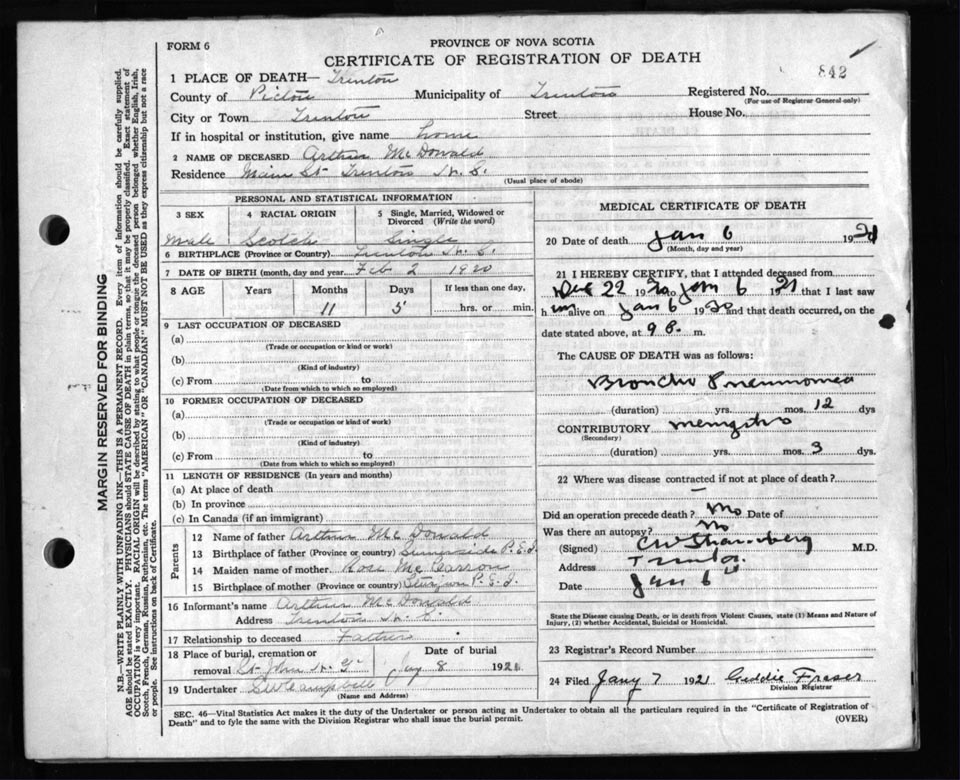 FORM 6
PROVINCE OF NOVA SCOTIA
CERTIFICATE OF REGISTRATION OF DEATH
842
1 PLACE OF DEATH— Trenton
County of Pictou Municipality of Trenton Registered No.
(For use of Registrar General only)
City or Town Trenton Street House No.
If in hospital or institution, give name home
2 NAME OF DECEASED Arthur McDonald
Residence Main St Trenton N.S.
(Usual place of abode)
MARGIN RESERVED FOR BINDING
N.B.—WRITE PLAINLY WITH UNFADING INK—THIS IS A PERMANENT RECORD. Every item of information should be carefully supplied.
AGE should be stated EXACTLY. PHYSICIANS should STATE CAUSE OF DEATH in plain terms, so that it may be properly classified. Exact statement of
OCCUPATION is very important. RACIAL ORIGIN will be described by stating to what people or tongue the deceased person belonged whether English, Irish,
Scotch, French, German, Russian, Ruthenian, etc. The terms "AMERICAN" OR "CANADIAN" MUST NOT BE USED as they express citizenship but not a race
or people. See instructions on back of Certificate.
PERSONAL AND STATISTICAL INFORMATION
3 SEX 4 RACIAL ORIGIN 5 Single, Married, Widowed or
Divorced (Write the word)
Male Scotch Single
6 BIRTHPLACE (Province or Country) Trenton N.S.
7 DATE OF BIRTH (month, day and year) Feb 2 1920
8 AGE Years Months Days If less than one day,
11 5 hrs. or min.
9 LAST OCCUPATION OF DECEASED
(a)
(Trade or occupation or kind or work)
(b)
(Kind of industry)
(c) From to
(Date from which to which so employed)
10 FORMER OCCUPATION OF DECEASED
(a)
(Trade or occupation or kind of work)
(b)
(Kind of industry)
(c) From to
(Date from which to which so employed)
11 LENGTH OF RESIDENCE (In years and months)
(a) At place of death
(b) In province
(c) In Canada (if an immigrant)
Parents
12 Name of father Arthur McDonald
13 Birthplace of father (Province or country) P.E.I.
14 Maiden name of mother Rose McCarron
15 Birthplace of mother (Province or country) P.E.I.
16 Informant's name Arthur McDonald
Address Trenton N.S.
17 Relationship to deceased Father
18 Place of burial, cremation or Date of burial
removal St John N.G. Jany 8 1921
19 Undertaker Campbell
(Name and Address)
MEDICAL CERTIFICATE OF DEATH
20 Date of death Jan 6 1921
(Month, day and year)
21 I HEREBY CERTIFY, that I attended deceased from
Dec 22 1920 to Jan 6 1921 that I last saw
him alive on Jan 6 1920 and that death occurred, on the
date stated above, at 9 P. m.
The CAUSE OF DEATH was as follows:
Broncho Pneumonea
(duration) yrs. mos. 12 dys
CONTRIBUTORY meningitis
(Secondary)
(duration) yrs. mos. 3 dys.
22 Where was disease contracted if not at place of death?
Did an operation precede death? No Date of
Was there an autopsy? No
(Signed) M.D.
Address Trenton
Date Jan 6
State the Disease causing Death, or in death from Violent Causes, state (1) Means and Nature of
Injury, (2) whether Accidental, Suicidal or Homicidal.
23 Registrar's Record Number
24 Filed Jany 7 1921 Fraser
Division Registrar
SEC. 46—Vital Statistics Act makes it the duty of the Undertaker or person acting as Undertaker to obtain all the particulars required in the "Certificate of Registration of
Death" and to fyle the same with the Division Registrar who shall issue the burial permit. (OVER)